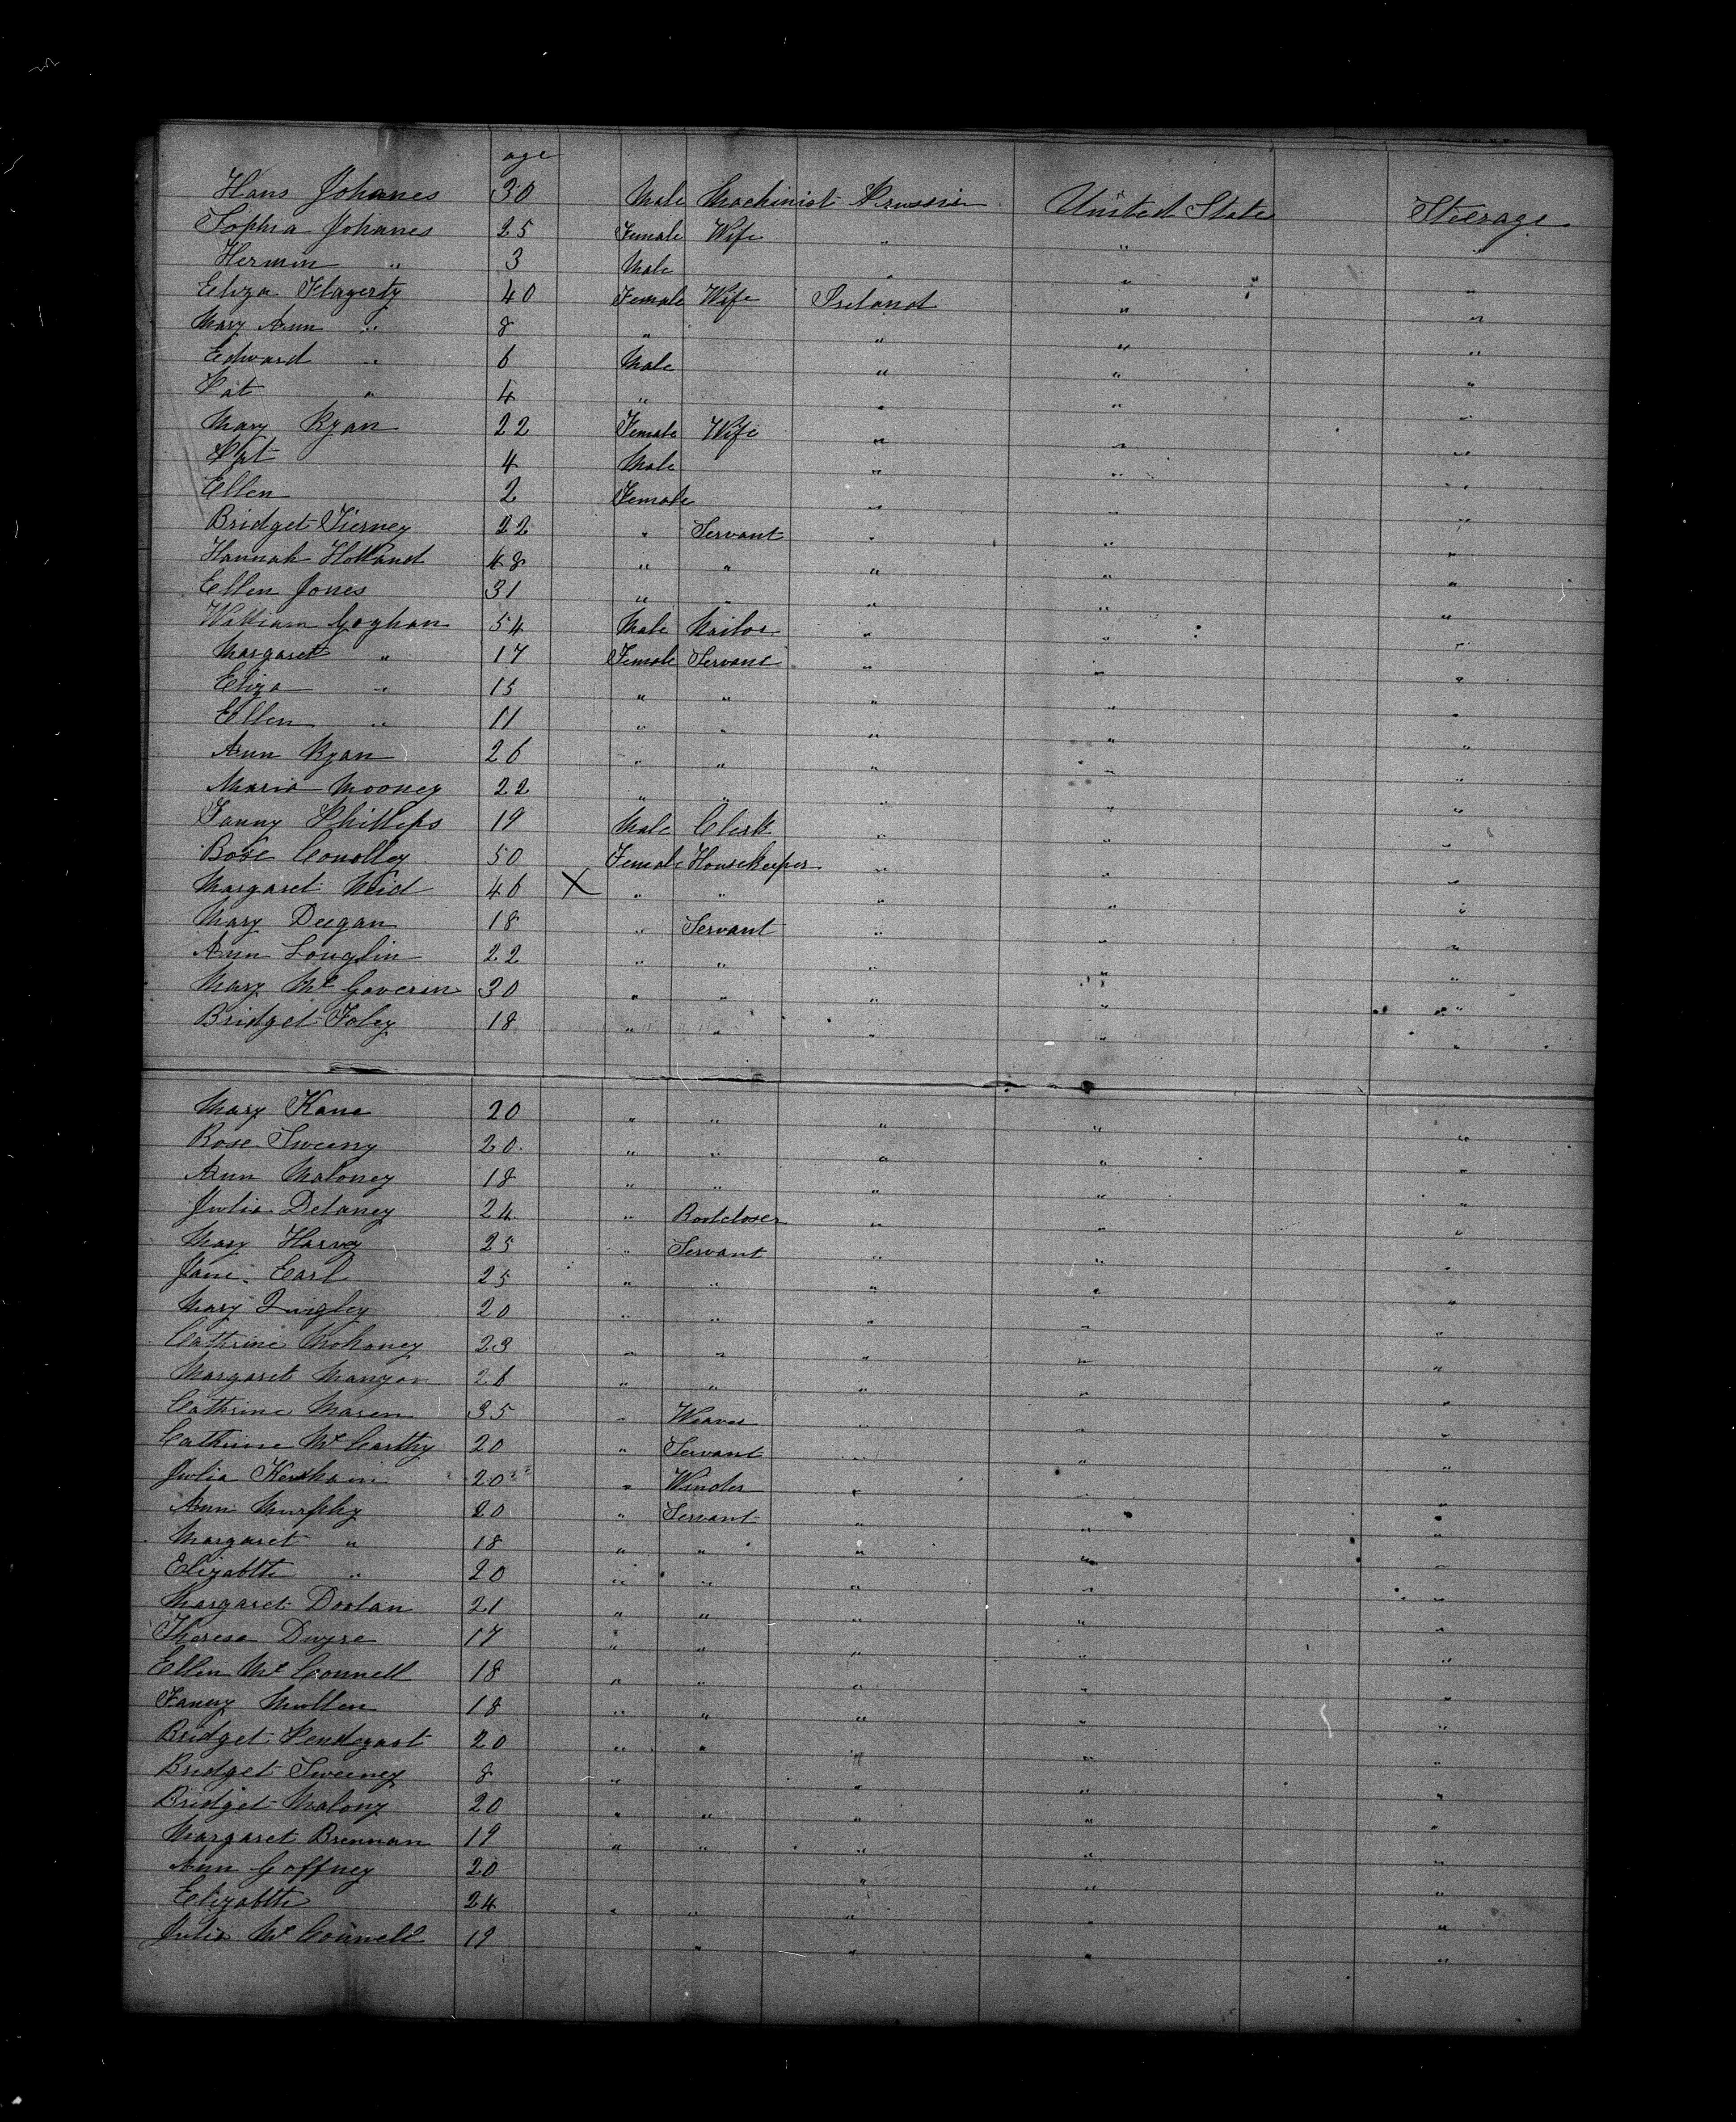 age
Hans Johanes 30 Male Machinist Prussia United State Steerage
Sophia Johanes 25 Female Wife " " "
Hermin " 3 Male " " "
Eliza Flagerty 40 Female Wife Ireland " "
Mary Ann " 8 " " " "
Edward " 6 Male " " "
Pat " 4 " " " "
Mary Ryan 22 Female Wife " " "
Pat 4 Male " " "
Ellen 2 Female " " "
Bridget Tierney 22 " Servant " " "
Hannah Holland 48 " " " " "
Ellen Jones 31 " " " " "
William Goghan 54 Male " " "
Margaret " 17 Female Servant " " "
Eliza " 15 " " " " "
Ellen " 11 " " " " "
Ann Ryan 26 " " " " "
Maria Mooney 22 " " " " "
Fanny Phillips 19 Male Clerk " " "
Rose Conolley 50 Female Housekeeper " " "
Margaret Reid 46 X " " " " "
Mary Deegan 18 " Servant " " "
Ann Louglin 22 " " " " "
Mary Mc Goverin 30 " " " " "
Bridget Foley 18 " " " " "
Mary Kane 20 " " " " "
Rose Sweeny 20 " " " " "
Ann Maloney 18 " " " " "
Julia Delaney 24 " Bootcloser " " "
Mary Harvey 25 " Servant " " "
Jane Earl 25 " " " " "
Mary Quigley 20 " " " " "
Cathrine Mohoney 23 " " " " "
Margaret Mangan 26 " " " " "
Cathrine Maren 35 " Weaver " " "
Cathrine Mc Carthy 20 " Servant " " "
Julia 20 " Winder " " "
Ann Murphy 20 " Servant " " "
Margaret " 18 " " " " "
Elizabth " 20 " " " " "
Margaret Doolan 21 " " " " "
Theresa Dwyre 17 " " " " "
Ellen Mc Connell 18 " " " " "
Fanny Mullen 18 " " " " "
Bridget Pendegast 20 " " " " "
Bridget Sweeney 8 " " " "
Bridget Malony 20 " " " " "
Margaret Brennan 19 " " " " "
Ann Goffney 20 " " "
Elizabth 24 " " " " "
Julia Mc Connell 19 " " " "